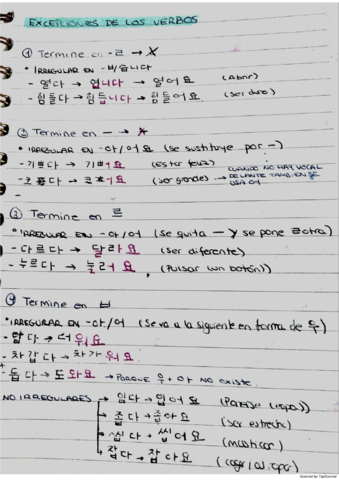 EXCEPCIONES DE LOS VERBOS
① Termine en -ㄹ → X
• IRREGULAR EN -ㅂ/습니다
- 열다 → 엽니다 → 열어요 (Abrir)
- 힘들다 → 힘듭니다 → 힘들어요 (Ser duro)
② Termine en — → X
• IRREGULAR EN -아/어요 (se sustituye por -)
- 기쁘다 → 기뻐요 (Estar feliz)
CUANDO NO HAY VOCAL
DELANTE TAMBIÉN SE
USA 어
(Ser grande) →
③ Termine en 르
• IRREGULAR EN -아/어 (Se quita — y se pone ㄹ otra)
- 다르다 → 달라요 (Ser diferente)
- 누르다 → 눌러요 (Pulsar (un botón))
④ Termine en ㅂ
• IRREGULAR EN -아/어 (Se va a la siguiente en forma de 우)
- 덥다 → 더워요
- 차갑다 → 차가워요
- 돕다 → 도와요 → PORQUE 우 + 아 NO EXISTE.
NO IRREGULARES → 입다 → 입어요 (Ponerse (ropa))
→ 좁다 → 좁아요 (ser estrecho)
→ 씹다 → 씹어요 (masticar)
→ 잡다 → 잡아요
Scanned by TapScanner